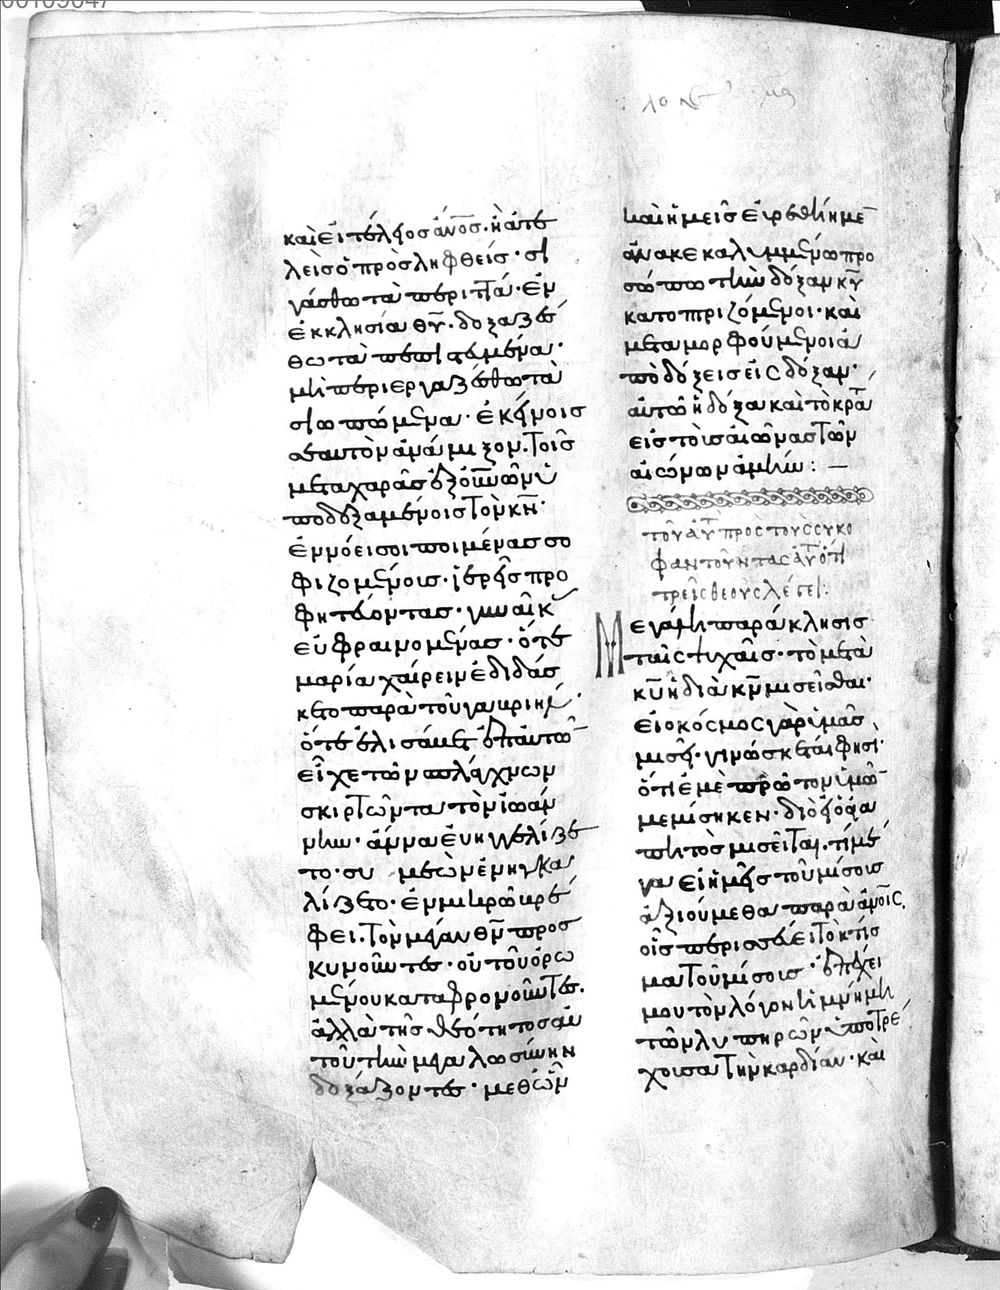 καὶ εἰ τέλειος ἄνο̅ς· ἢ ἀτε
λεὶς ὁ προσληφθείς· σι
γάσθω τὰ περιττά· ἐν
ἐκκλησία θυ̅· δοξαζέ
θω τὰ
μὴ περιεργαζέσθω τὰ
σιωπώμενα· ἐκείνοις
σεαυτὸν ἀνάμιξον· τοῖς
μετὰ χαρᾶς ἐξ οὐνῶν ὑ
ποδεξαμένοις τὸν κν̅·
ἐννόει σοι ποιμένας σο
φιζομένους· ἱερεῖς προ
φητεύοντας· γυναῖκ
εὐφραινομένας· ὅτε
μαρία χαίρειν ἐδιδάσ
κετο παρὰ τοῦ γαυριήλ·
ὅτε ἐλισάβετ ἐπ αὐτῶ
εἶχε τῶν σπλάγχνων
σκιρτῶντα τὸν ἰωάν
νην· ἄννα εὐηγγελίζε
το· συ μεὼν ἐνηγκα
λίζετο· ἐν μικρῶ βρέ
φει· τὸν μέγαν θν̅ προσ
κυνοῦντες· οὐ τοῦ ὁρω
μένου καταφρονοῦντες·
ἀλλὰ τῆς θεότητος αὐ
τοῦ τὴν μεγαλωσύνην
δοξάζοντες· μεθ ὧν
καὶ ἡμεῖς εὑρεθείημε̅
ἀνακεκαλυμμένω προ
σώπω τὴν δόξαν κυ̅
κατοπτριζόμενοι· καὶ
μεταμορφούμενοι ἀ
πὸ δόξεις εἰς δόξαν·
αὐτῶ ἡ δόξα καὶ τὸ κρά
εἰς τοὺς αἰῶνας τῶν
αἰώνων ἀμήν: —
τοῦ αὐτ προς τοὺς συκο
φαντοῦντας αὐτ ὅτι
τρεῖς θεοὺς λέγει:
Μεγάλη παράκλησις
ταῖς ψυχαῖς· τὸ μετὰ
κυ̅ ἢ διὰ κν̅ μισεῖσθαι·
εἰ ὁ κόσμος γὰρ ὑμᾶς
μισεῖ· γινώσκεται φησὶ·
ὅτι ἐμὲ πρῶτον ὑμῶ̅
μεμίσηκεν· διὸ
μισεῖται· τί μέ
γα εἰ ἡμεῖς τοῦ μίσους
ἀξιούμεθα παρὰ ἀνοις·
οἷς περισσεύει τὸ κτίσ
μα τοῦ μίσους· ἐπέχει
μου τὸν λόγον ἡ μνήμη
τῶν λυπηρῶν ὑποτρέ
χουσα τὴν καρδίαν· καὶ